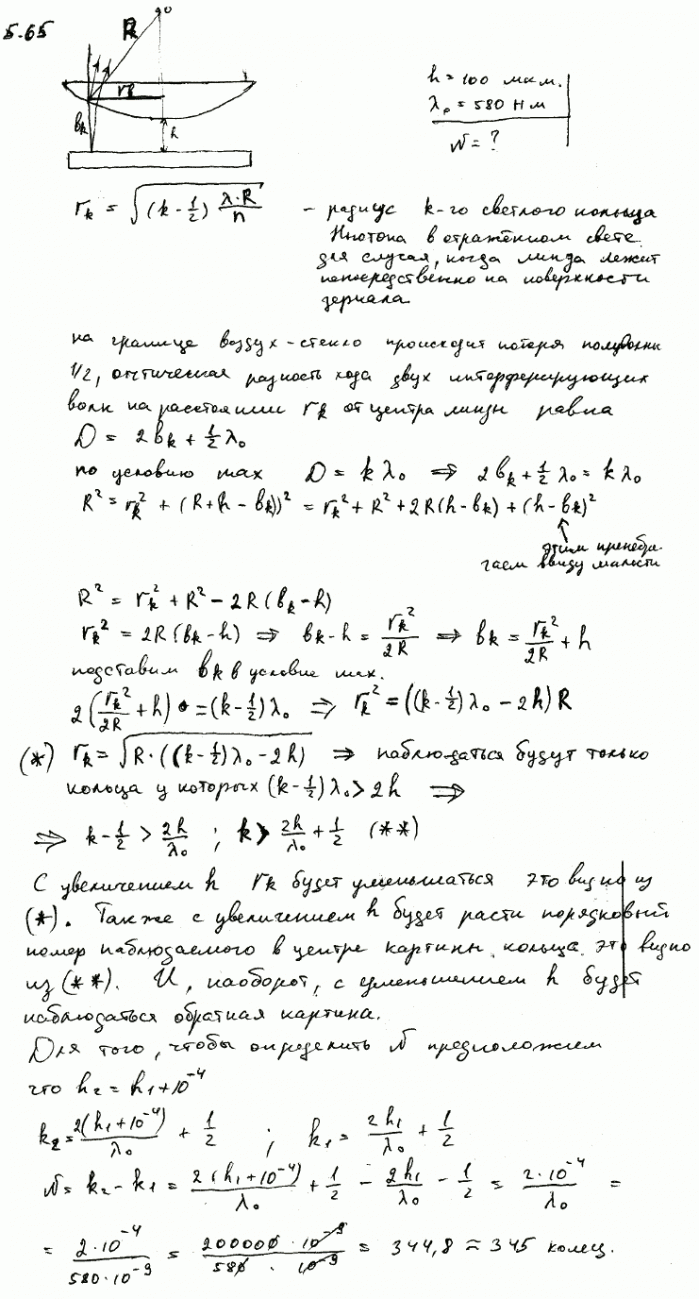 5.65
R
O
rk
bk
h
h = 100 мкм.
λ₀ = 580 Нм
N = ?
rk = √((k - 1/2) λ·R/n) - радиус k-го светлого кольца
Ньютона в отражённом свете
для случая, когда линза лежит
непосредственно на поверхности
зеркала
на границе воздух-стекло происходит потеря полуволны
1/2, оптическая разность хода двух интерферирующих
волн на расстоянии rk от центра линзы равна
D = 2bk + 1/2 λ₀
по условию max D = kλ₀ ⇒ 2bk + 1/2 λ₀ = kλ₀
R² = rk² + (R + h - bk))² = rk² + R² + 2R(h - bk) + (h - bk)²
этим пренебре-
гаем ввиду малости
R² = rk² + R² - 2R(bk - h)
rk² = 2R(bk - h) ⇒ bk - h = rk²/2R ⇒ bk = rk²/2R + h
подставим bk в условие max.
2(rk²/2R + h) = (k - 1/2)λ₀ ⇒ rk² = ((k - 1/2)λ₀ - 2h)R
(*) rk = √(R·((k - 1/2)λ₀ - 2h) ⇒ наблюдаться будут только
кольца у которых (k - 1/2)λ₀ > 2h ⇒
⇒ k - 1/2 > 2h/λ₀ ; k > 2h/λ₀ + 1/2 (**)
С увеличением h rk будет уменьшаться это видно из
(*). Также с увеличением h будет расти порядковый
номер наблюдаемого в центре картины кольца. это видно
из (**). И, наоборот, с уменьшением h будет
наблюдаться обратная картина.
Для того, чтобы определить N предположим
что h₂ = h₁ + 10⁻⁴
k₂ = 2(h₁ + 10⁻⁴)/λ₀ + 1/2 ; k₁ = 2h₁/λ₀ + 1/2
N = k₂ - k₁ = 2(h₁ + 10⁻⁴)/λ₀ + 1/2 - 2h₁/λ₀ - 1/2 = 2·10⁻⁴/λ₀ =
= 2·10⁻⁴/580·10⁻⁹ = 200000·10⁻⁹/580·10⁻⁹ = 344,8 ≈ 345 колец.